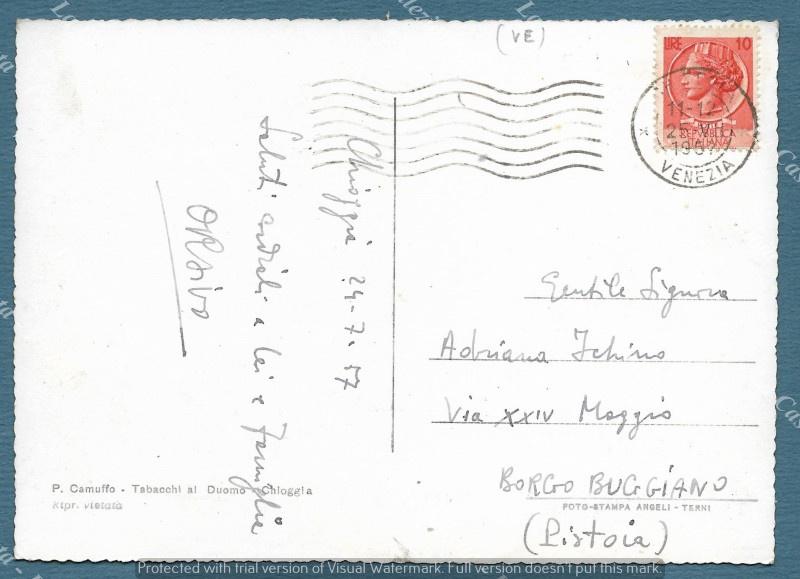 (VE)
LIRE 10
11-12
25 VII
1957
REPVBBLICA
ITALIANA
VENEZIA
Chioggia 24-7-57
Saluti cordiali a lei e Famiglia
Gentile Signora
Adriana Ichino
Via XXIV Maggio
BORGO BUGGIANO
(Pistoia)
P. Camuffo - Tabacchi al Duomo - Chioggia
Ripr. vietata
FOTO-STAMPA ANGELI - TERNI
Protected with trial version of Visual Watermark. Full version doesn't put this mark.